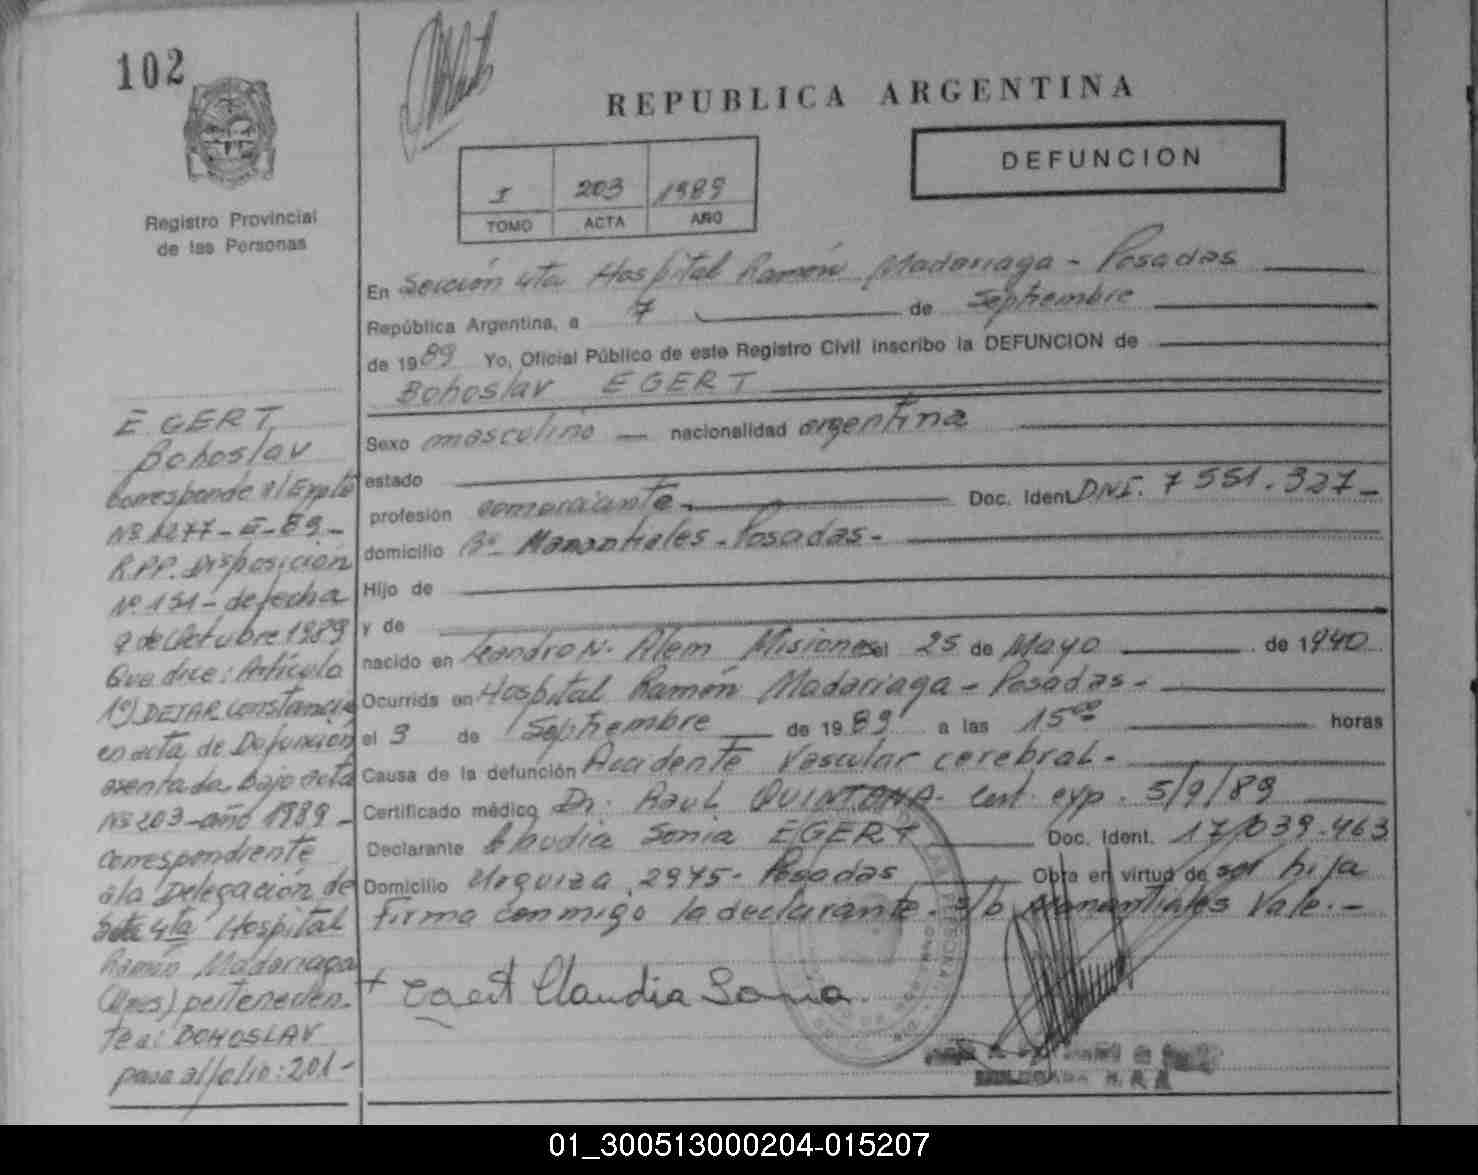 102
REPUBLICA ARGENTINA
DEFUNCION
I 203 1989
TOMO ACTA AÑO
Registro Provincial
de las Personas
En Sección 4ta Hospital Ramón Madariaga - Posadas
República Argentina, a 7 de Septiembre
de 1989 Yo, Oficial Público de este Registro Civil inscribo la DEFUNCION de
Bohoslav EGERT
Sexo masculino nacionalidad argentina
estado
profesión comerciante Doc. Ident. DNI. 7 551.327-
domicilio Bº Manantiales - Posadas-
Hijo de
y de
nacido en Leandro N. Alem Misiones el 25 de Mayo de 1940
Ocurrida en Hospital Ramón Madariaga - Posadas-
el 3 de Septiembre de 1989 a las 15 00 horas
Causa de la defunción Accidente Vascular cerebral-
Certificado médico Dr. Raul QUINTANA- Cert. exp. 5/9/89
Declarante Claudia Sonia EGERT Doc. Ident. 17/039.463
Domicilio Urquiza 2975- Posadas Obra en virtud de ser hija
Firma conmigo la declarante. s/b Manantiales Vale.-
+ Egert Claudia Sonia.
EGERT
Bohoslav
Corresponde al Expte
Nº 1277-E-89-
R.P.P. Disposición
Nº 151- de fecha
9 de Octubre 1989
Que dice: Artículo
1º) DEJAR constancia
en acta de Defunción
asentada bajo acta
Nº 203-año 1989-
Correspondiente
a la Delegación de
4ta Hospital
Ramón Madariaga
pertenecien-
te a: BOHOSLAV
pasa al folio: 201-
01_300513000204-015207